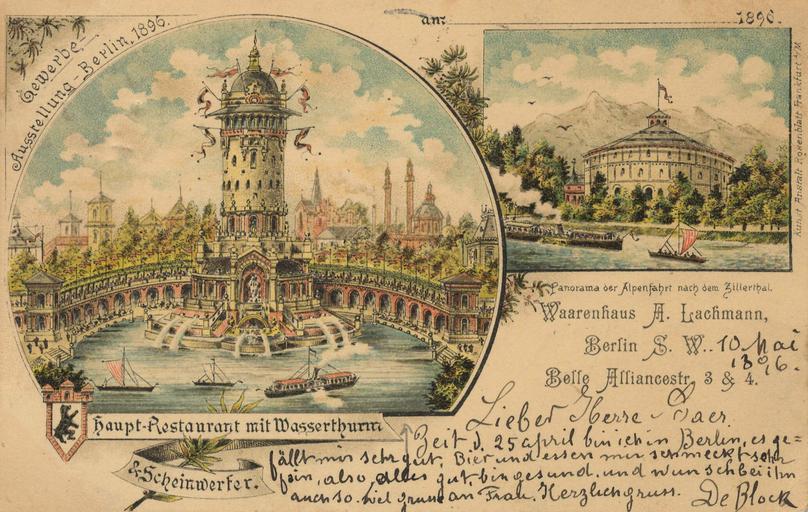 Gewerbe-
Ausstellung-Berlin, 1896.
am 1896.
Panorama der Alpenfahrt nach dem Zillerthal.
Waarenhaus A. Lachmann,
Berlin S. W. 10 Mai
1896.
Belle Alliancestr. 3 & 4.
Haupt-Restaurant mit Wasserthurm
& Scheinwerfer.
Kunst Anstalt Rosenblatt Frankfurt a/M.
Lieber Herre
Zeit d. 25 april bin ich in Berlin, es ge=
fällt mir sehr gut, Bier und essen mir schmeckt sehr
fein, also, alles gut, bin gesund, und wunsch bei ihn
auch so. viel gruss an Frau. Herzlich gruss. De Block